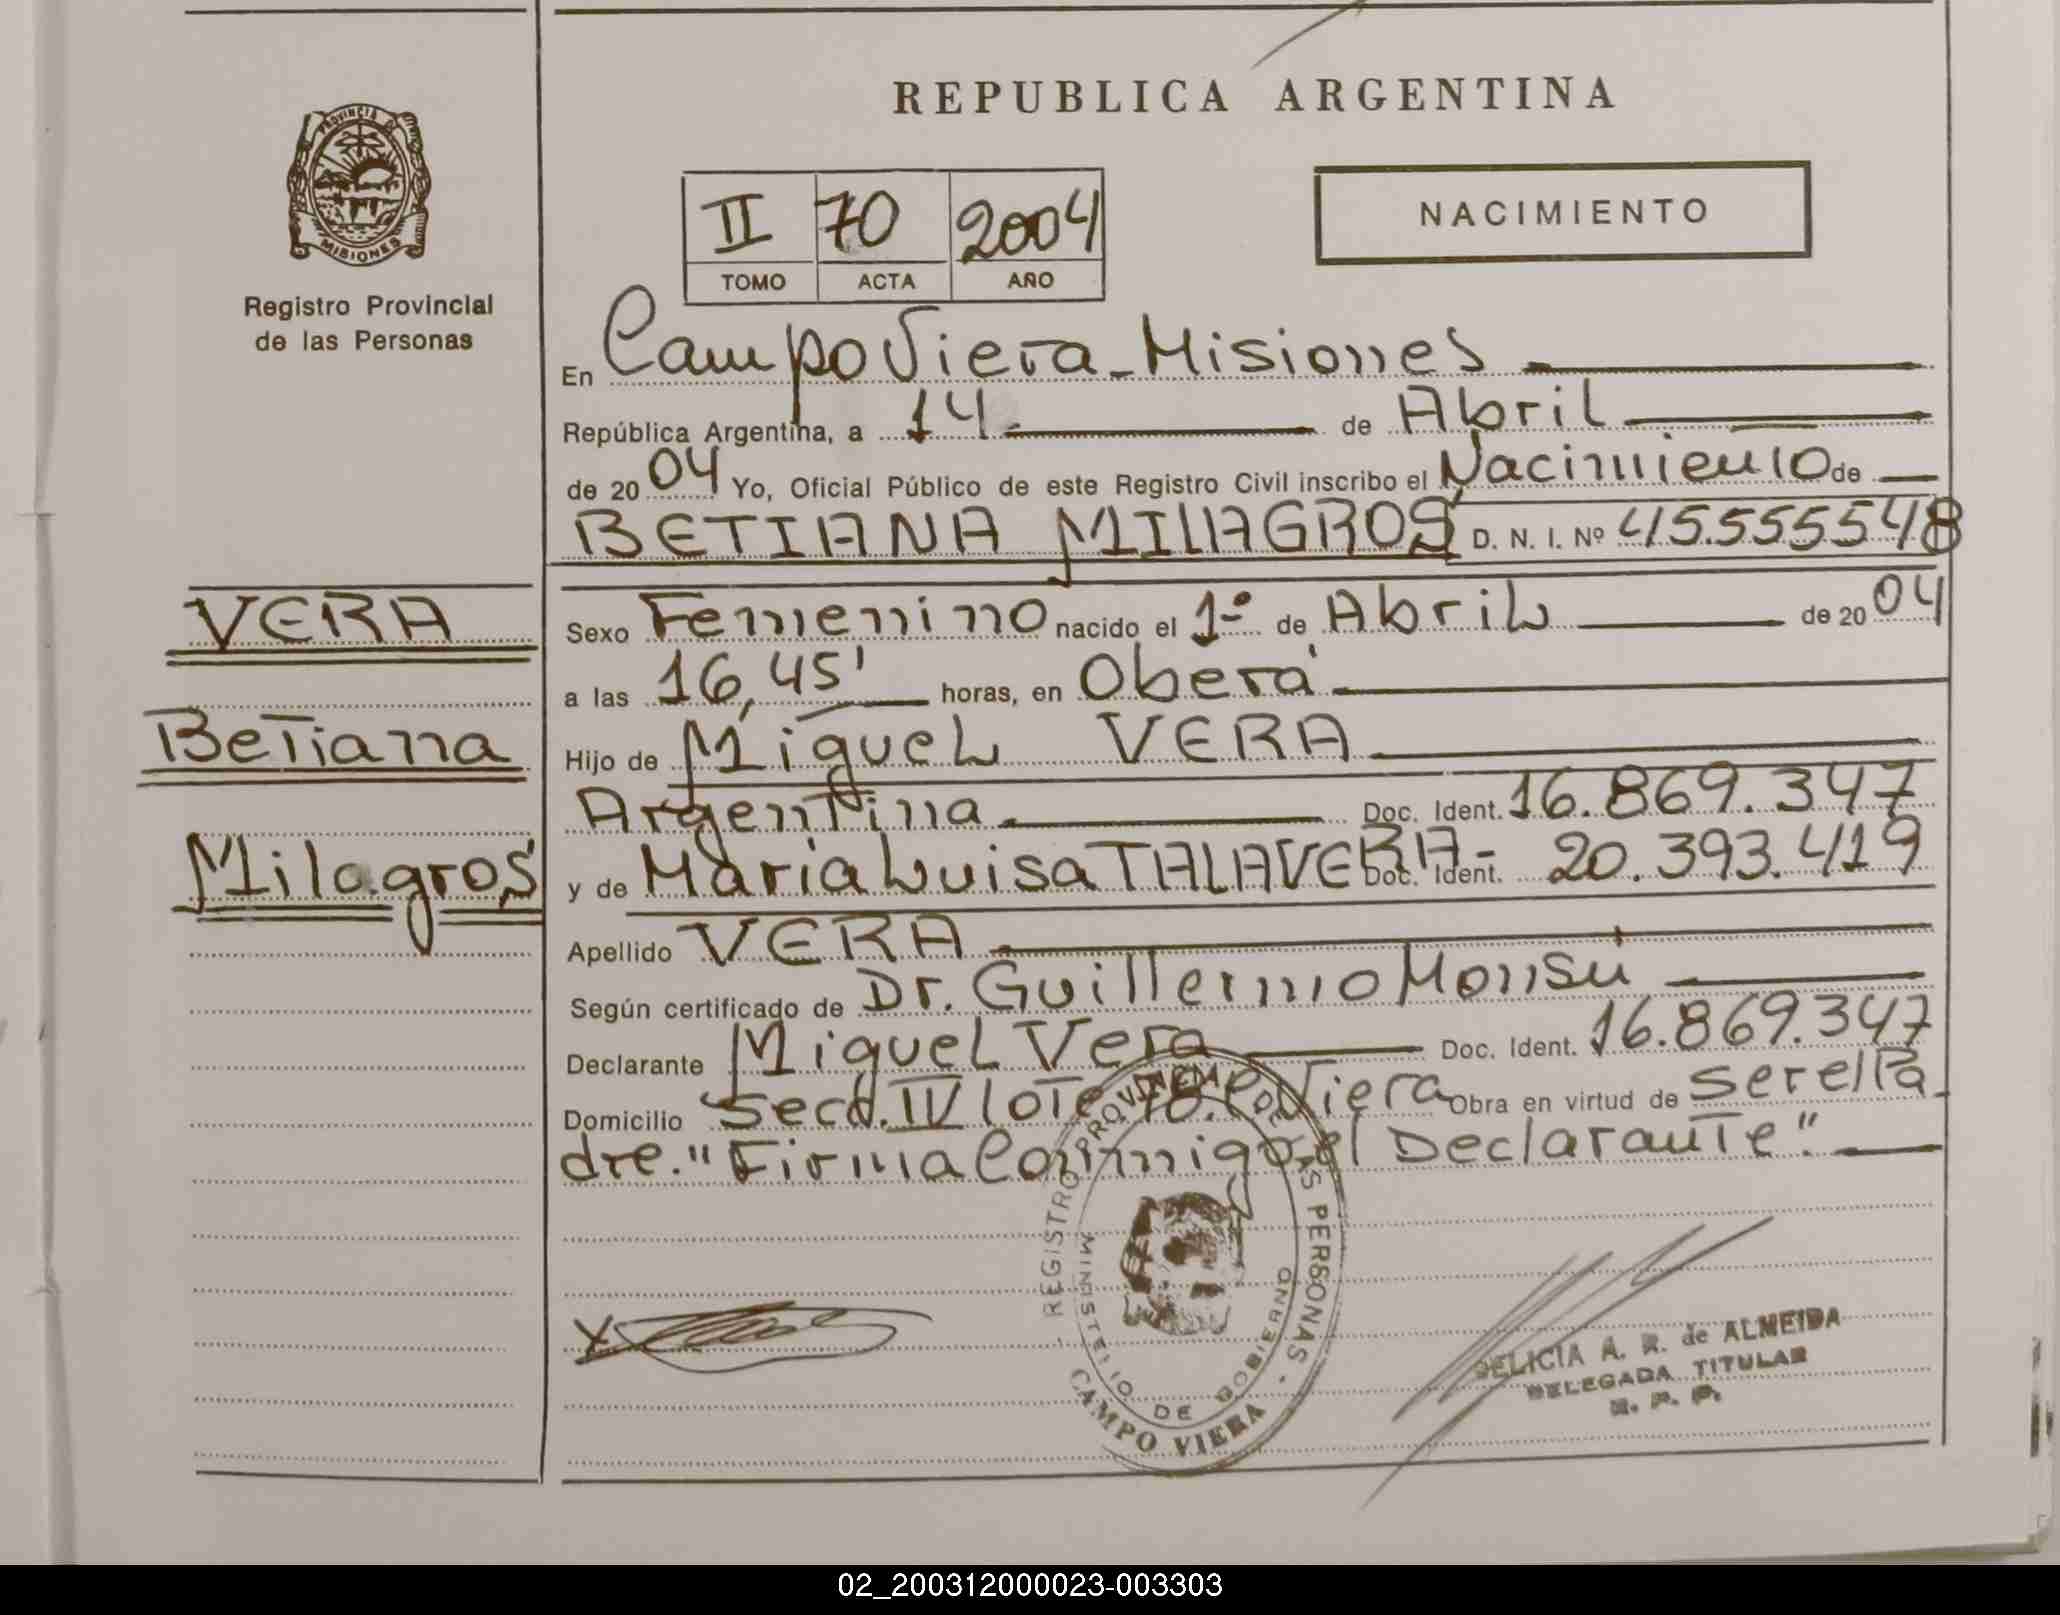 REPUBLICA ARGENTINA
PROVINCIA DE
MISIONES
Registro Provincial
de las Personas
II 70 2004
TOMO ACTA AÑO
NACIMIENTO
En Campo Viera - Misiones
República Argentina, a 14 de Abril
de 2004 Yo, Oficial Público de este Registro Civil inscribo el Nacimiento de
BETIANA MILAGROS D. N. I. Nº 45.555548
VERA
Betiana
Milagros
Sexo Femenino nacido el 1º de Abril de 2004
a las 16,45' horas, en Oberá
Hijo de Miguel VERA
Argentina Doc. Ident. 16.869.347
y de María Luisa TALAVERA - Doc. Ident. 20.393.419
Apellido VERA
Según certificado de Dr. Guillermo Monsu
Declarante Miguel Vera Doc. Ident. 16.869.347
Domicilio Secc. IV lote C. Viera Obra en virtud de ser el Pa
dre." Firma Conmigo el Declarante".
REGISTRO PROVINCIAL DE LAS PERSONAS
MINISTERIO DE GOBIERNO
CAMPO VIERA
X
A. R. de ALMEIDA
DELEGADA TITULAR
R. P. P.
02_200312000023-003303